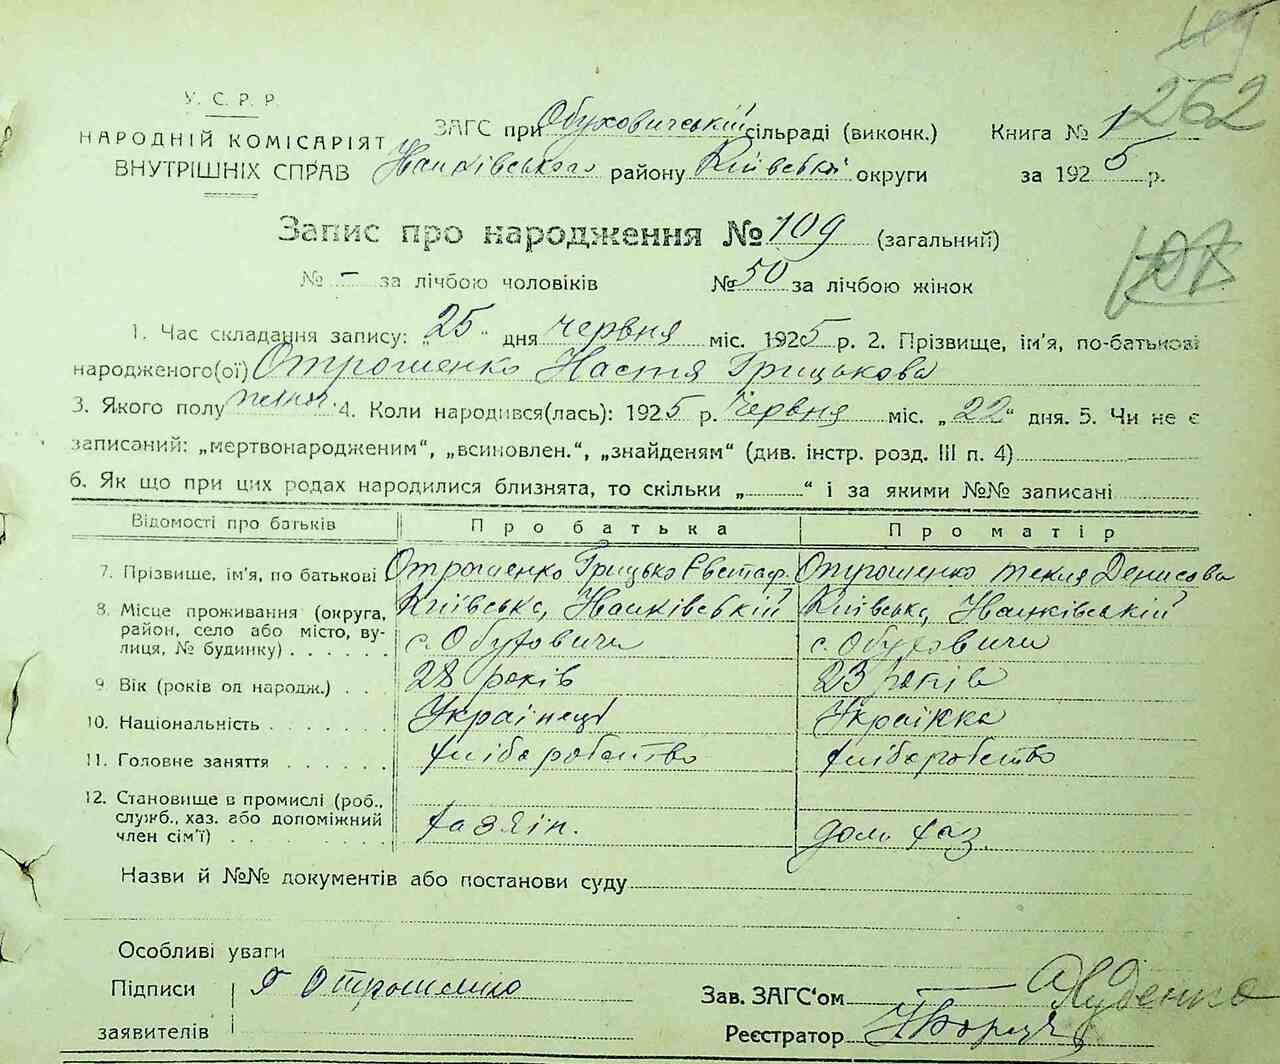 262
У. С. Р. Р.
НАРОДНІЙ КОМІСАРІЯТ
ВНУТРІШНІХ СПРАВ
ЗАГС при Обуховичській сільраді (виконк.) Книга № 1
району Київської округи за 1925 р.
Запис про народження № 109 (загальний)
№ - за лічбою чоловіків № 50 за лічбою жінок
1. Час складання запису: „25“ дня червня міс. 1925 р. 2. Прізвище, ім'я, по-батькові
народженого(ої) Отрошенко Настя Грицькова
3. Якого полу 4. Коли народився(лась): 1925 р. Червня міс. „22“ дня. 5. Чи не є
записаний: „мертвонародженим“, „всиновлен.“, „знайденям“ (див. інстр. розд. III п. 4)
6. Як що при цих родах народилися близнята, то скільки „ “ і за якими №№ записані
Відомості про батьків Про батька Про матір
7. Прізвище, ім'я, по батькові Отрошенко Грицько Євстаф. Отрошенко Текля Денисова
8. Місце проживання (округа, район, село або місто, вулиця, № будинку) Київська, с. Обуховичи Київська, с. Обуховичи
9. Вік (років од народж.) 28 років 23 років
10. Національність Українець Українка
11. Головне заняття хліборобство хліборобство
12. Становище в промислі (роб., служб., хаз. або допоміжний член сім'ї) хазяїн. дом. хаз.
Назви й №№ документів або постанови суду
Особливі уваги
Підписи заявителів Г Отрошенко
Зав. ЗАГС'ом
Реєстратор